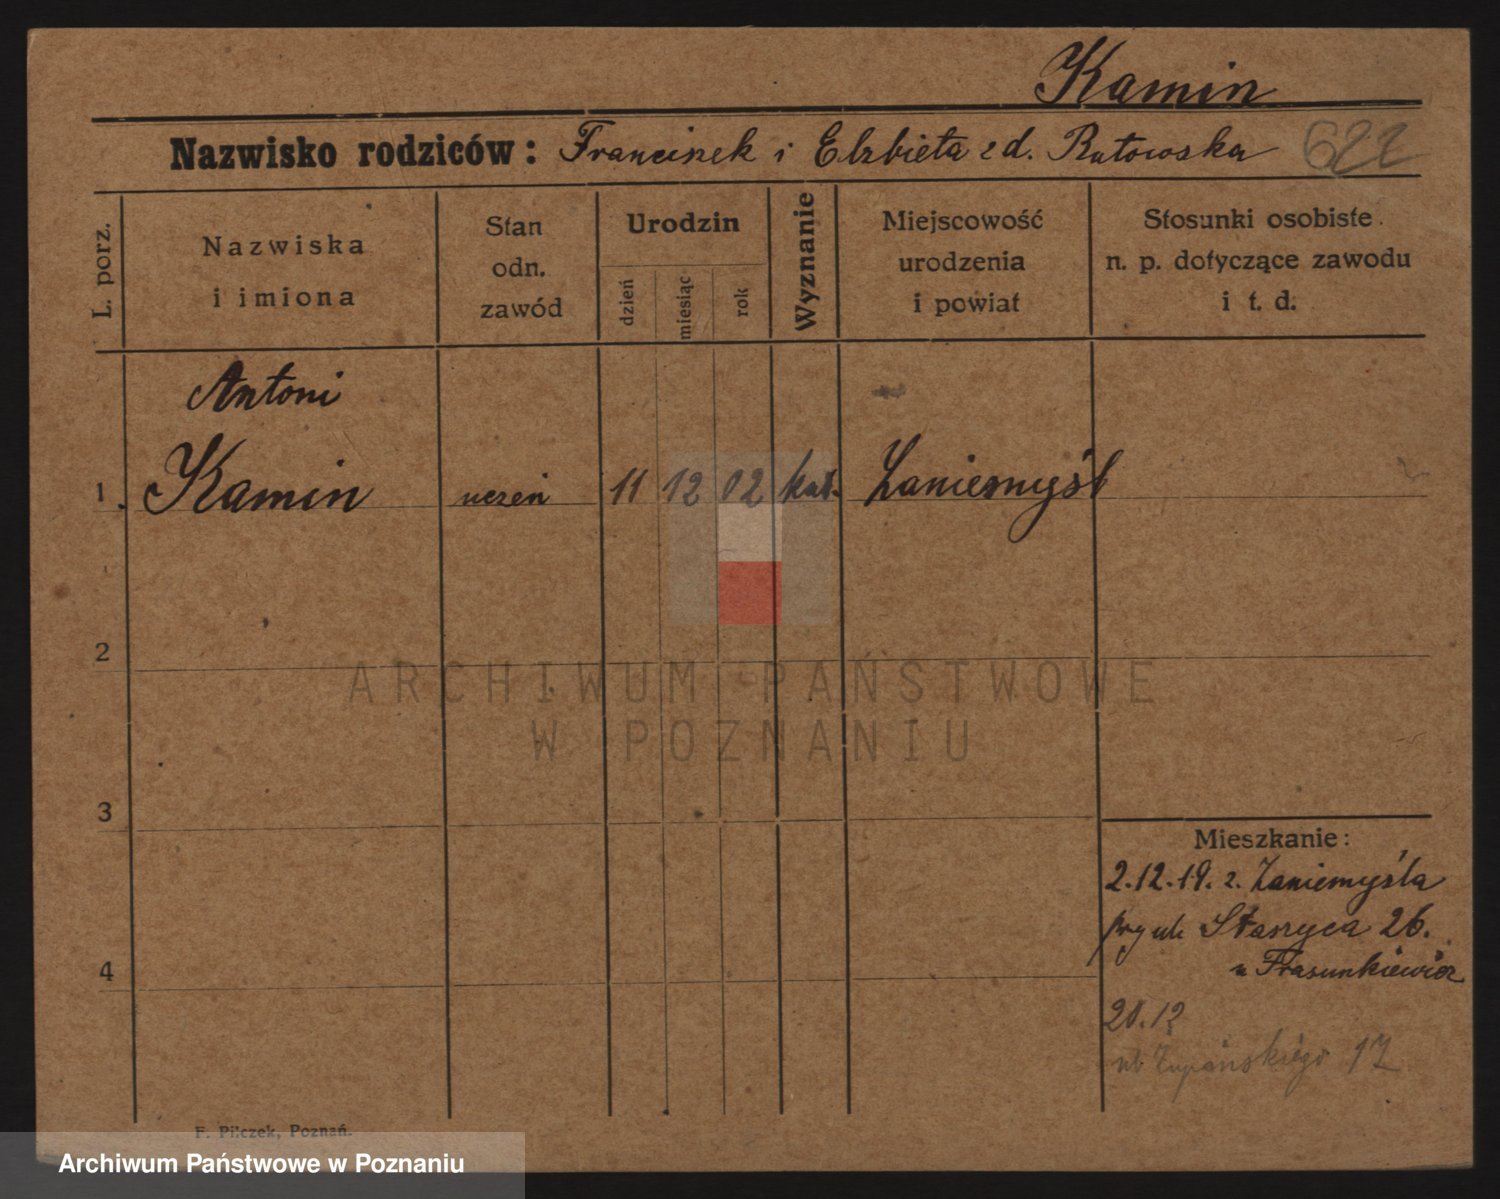 Kamin
Nazwisko rodziców: Franciszek i Elżbieta z d. Rutowska 622
L. porz.
Nazwiska i imiona
Stan odn. zawód
Urodzin
dzień
miesiąc
rok
Wyznanie
Miejscowość urodzenia i powiat
Stosunki osobiste n. p. dotyczące zawodu i t. d.
Antoni
1 Kamin uczeń 11 12 02 kat. Zaniemyśl
2
ARCHIWUM PAŃSTWOWE
W POZNANIU
3
Mieszkanie:
2.12.19. z. Zaniemyśla
przy ul. Staszyca 26.
u Frasunkiewicz
4
20.12
ul Żupańskiego 17
F. Pilczek, Poznań.
Archiwum Państwowe w Poznaniu